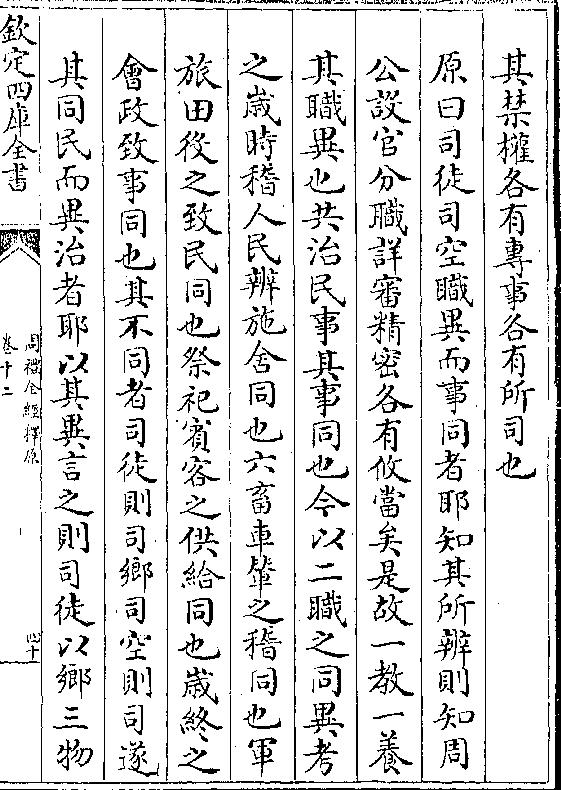 其禁權各有專事各有所司也
原曰司徒司空職異而事同者耶知其所辨則知周
公設官分職詳審精密各有攸當矣是故一教一養
其職異也共治民事其事同也今以二職之同異考
之歲時稽人民辨施舍同也六畜車輦之稽同也軍
旅田役之致民同也祭祀賓客之供給同也歲終之
會政致事同也其不同者司徒則司鄉司空則司遂
其同民而異治者耶以其異言之則司徒以鄉三物
欽定四庫全書
周禮全經釋原
卷十二
四十